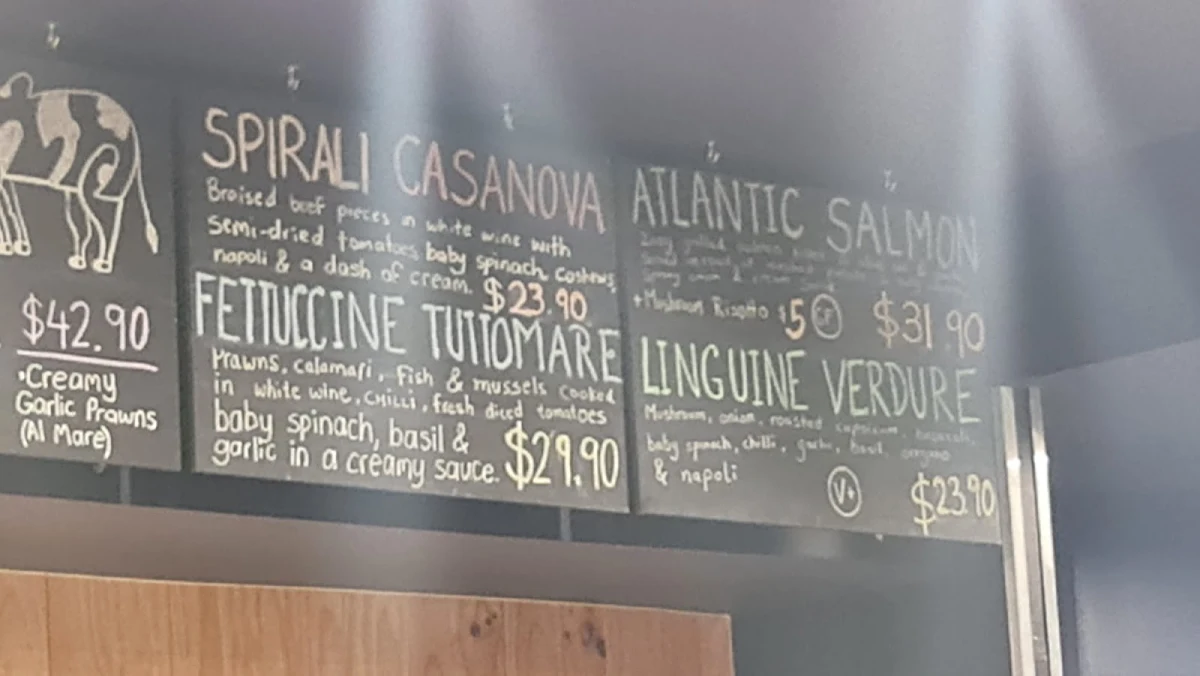 $42.90
•Creamy
Garlic Prawns
(Al Mare)
SPIRALI CASANOVA
Braised beef pieces in white wine with
semi-dried tomatoes baby spinach, cashews,
napoli & a dash of cream. $23.90
FETTUCCINE TUTTOMARE
Prawns, calamari, Fish & mussels cooked
in white wine, CHILLI, fresh diced tomatoes
baby spinach, basil &
garlic in a creamy sauce. $29.90
ATLANTIC SALMON
+Mushroom Risotto $5 GF $31.90
LINGUINE VERDURE
Mushroom, onion, roasted capsicum,
baby spinach, chilli, garlic, basil, oregano
& napoli
V+ $23.90